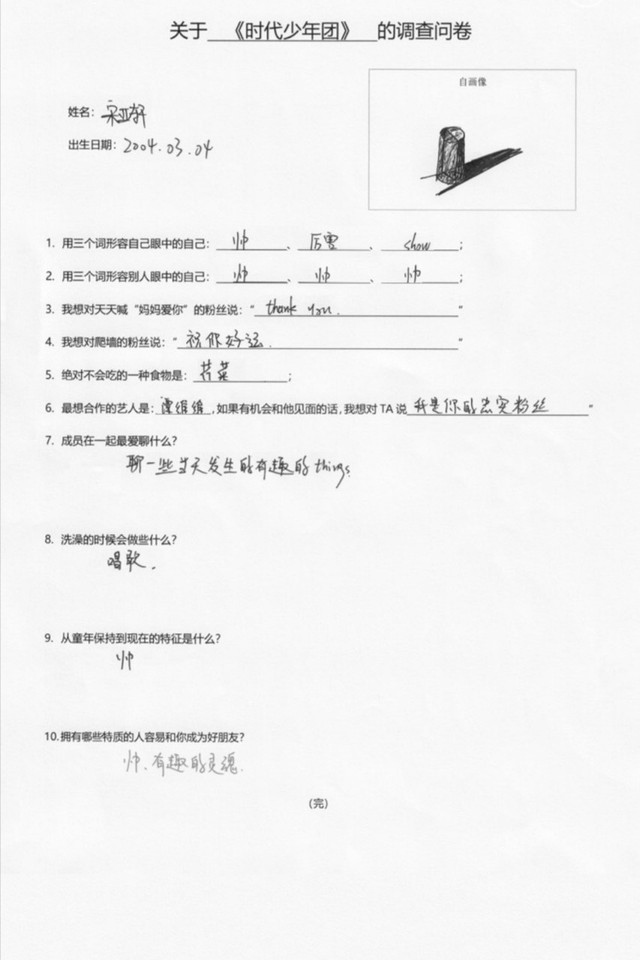 关于 《时代少年团》 的调查问卷
自画像
姓名：宋亚轩
出生日期：2004.03.04
1. 用三个词形容自己眼中的自己：帅、厉害、show；
2. 用三个词形容别人眼中的自己：帅、帅、帅；
3. 我想对天天喊“妈妈爱你”的粉丝说：“thank you.”
4. 我想对爬墙的粉丝说：“祝你好运.”
5. 绝对不会吃的一种食物是：芹菜；
6. 最想合作的艺人是：谭维维,如果有机会和他见面的话,我想对 TA 说我是你的忠实粉丝”
7. 成员在一起最爱聊什么？
聊一些当天发生的有趣的things.
8. 洗澡的时候会做些什么？
唱歌.
9. 从童年保持到现在的特征是什么？
帅
10.拥有哪些特质的人容易和你成为好朋友？
帅、有趣的灵魂.
（完）